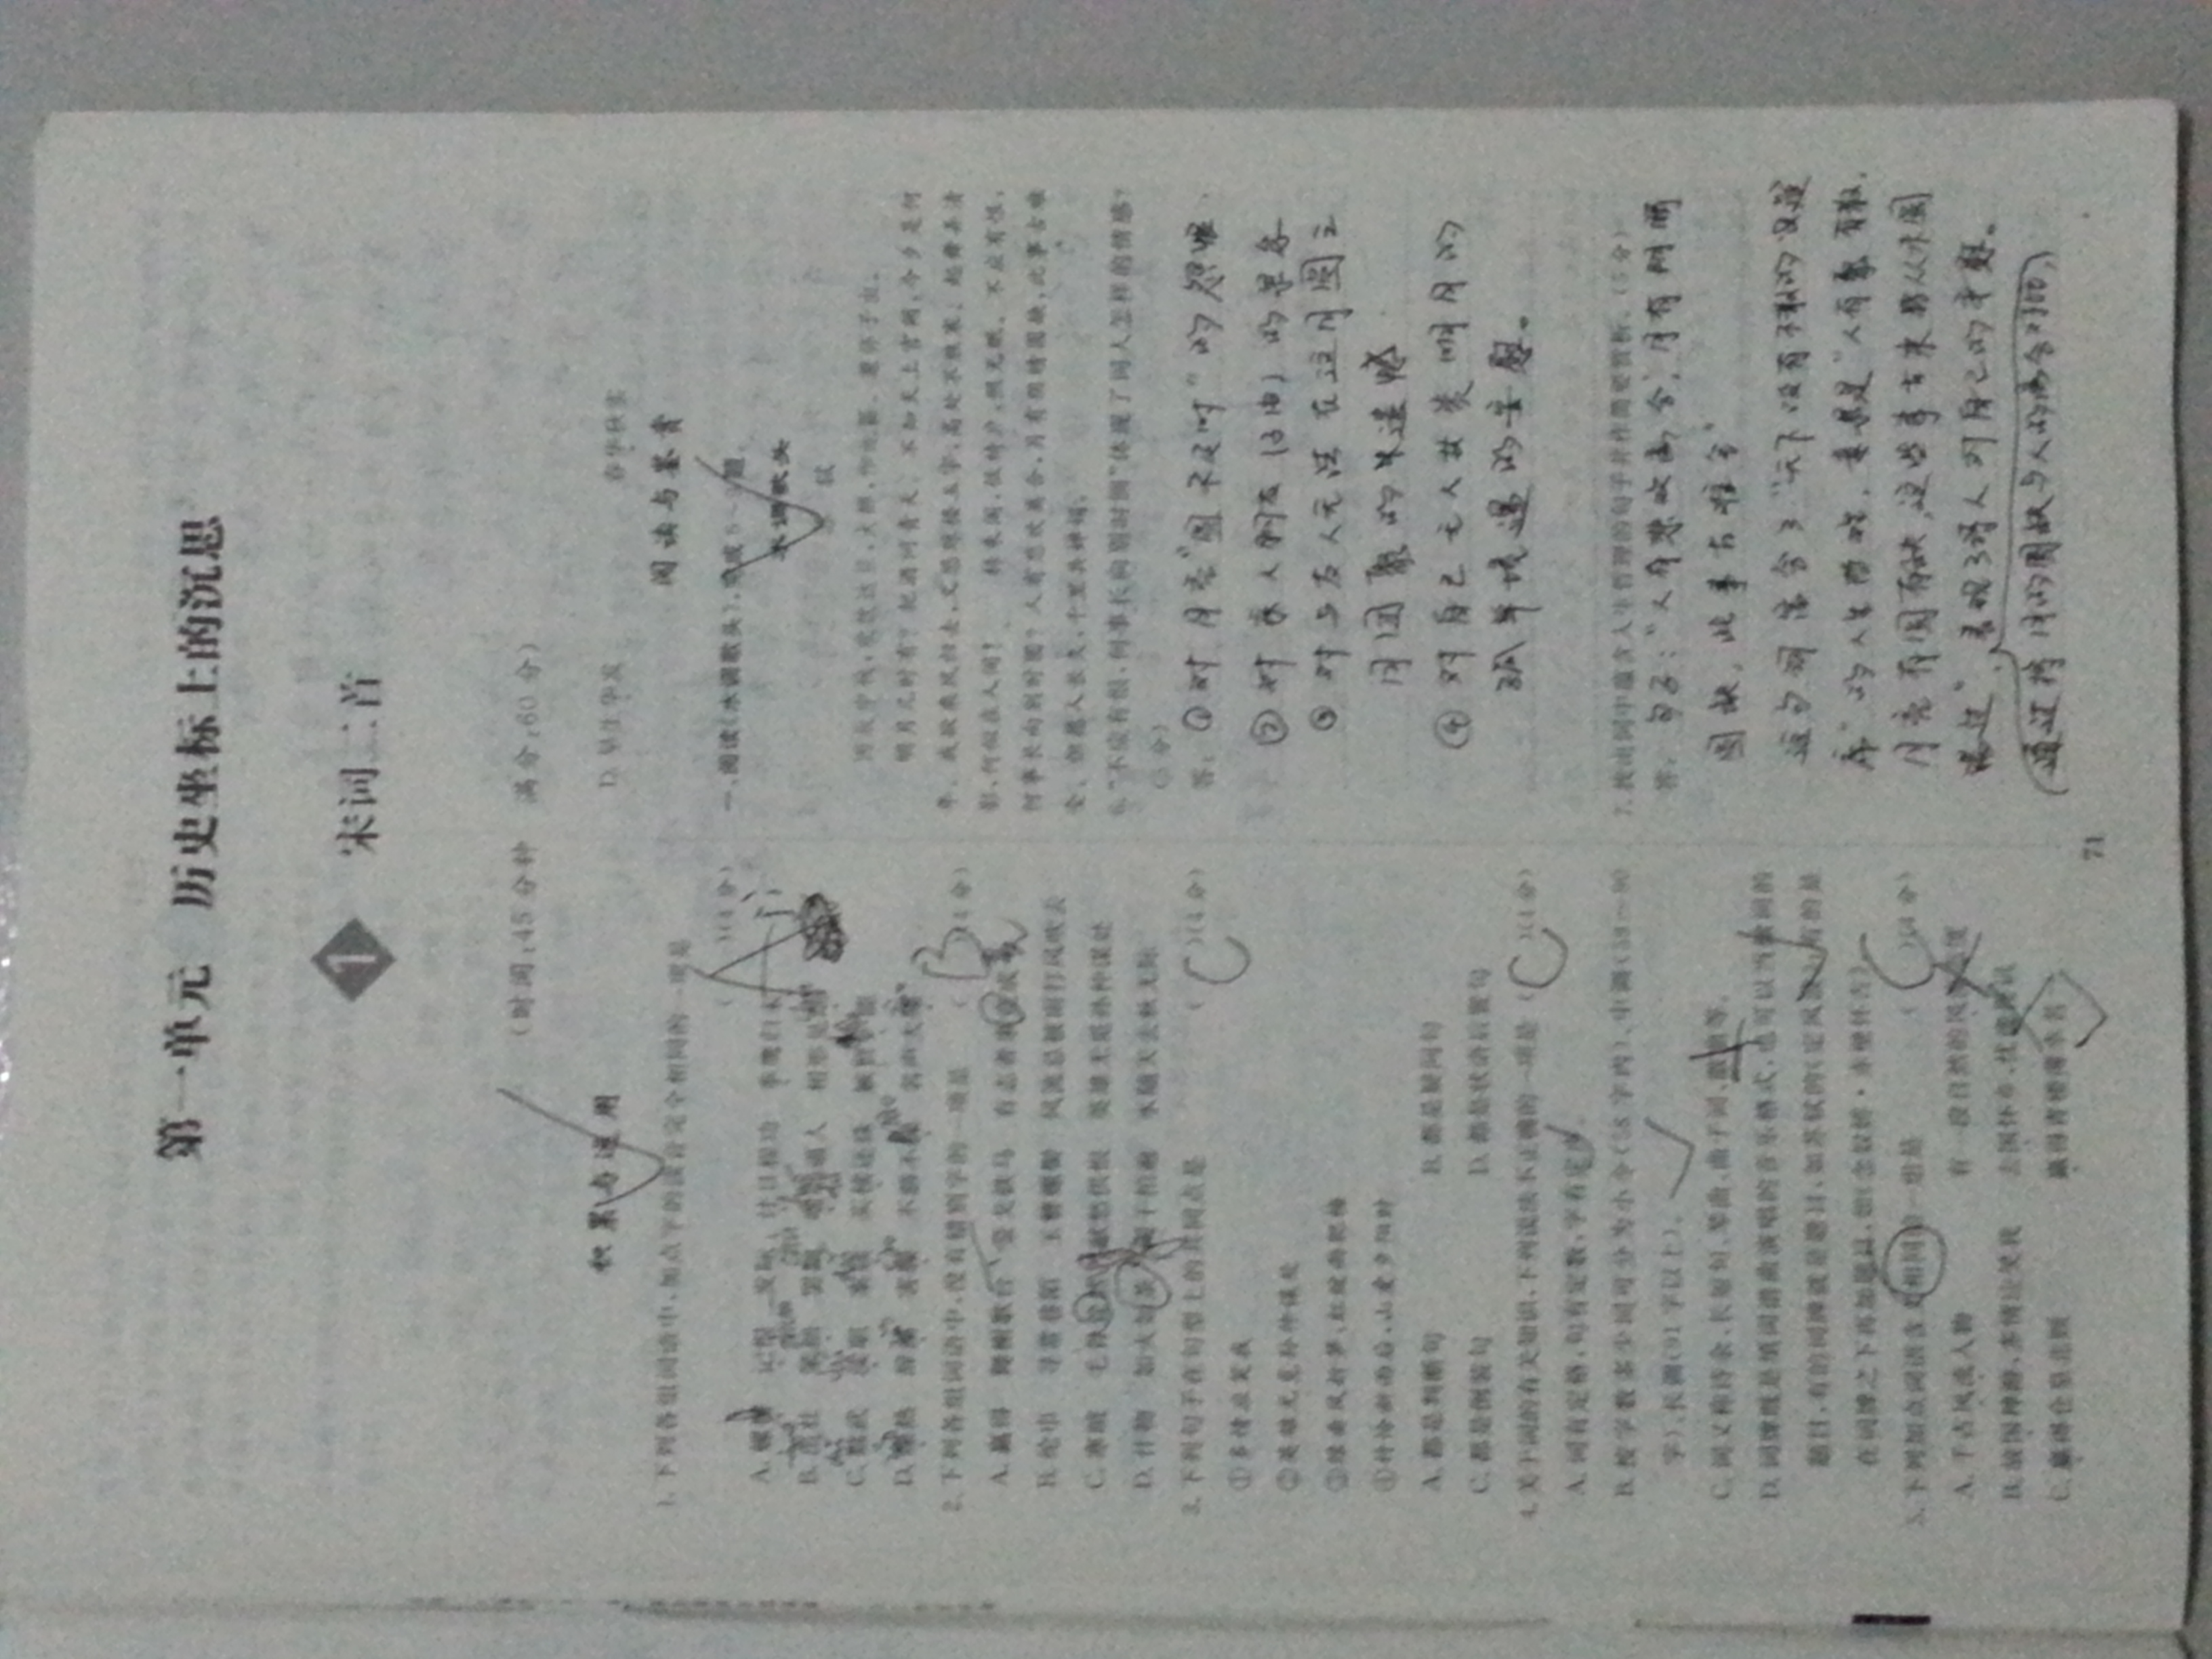 第一单元 历史坐标上的沉思
1 宋词二首
(时间:45分钟 满分:60分)
积累与运用
1.下列各组词语中,加点字的读音完全相同的一项是
( A )(4分)
A. 计日程功
B. 逼人
C.
D.
2.下列各组词语中,没有错别字的一项是 ( B )(4分)
A.赢得 舞榭歌台 金戈铁马 有志者事竟成
B.纶巾 寻常巷陌 玉簪螺髻 风流总被雨打风吹去
C. 献愁供恨 英雄无觅孙仲谋处
D.什物 如火如荼 阑干拍遍 水随天去秋无际
3.下列句子在句型上的共同点是 ( C )(4分)
①多情应笑我
②英雄无觅孙仲谋处
③绿垂风折笋,红绽雨肥梅
④竹怜新雨后,山爱夕阳时
A.都是判断句 B.都是疑问句
C.都是倒装句 D.都是状语后置句
4.关于词的有关知识,下列说法不正确的一项是 ( C )(4分)
A.词有定格,句有定数,字有定声。
B.按字数多少词可分为小令(58字内)、中调(59~90
字)、长调(91字以上)。
C.词又称诗余、长短句、琴曲、曲子词、散曲等。
D.词牌既是填词谱曲演唱的音乐格式,也可以当做词的
题目,有的词牌就是题目,如苏轼的《定风波》;有的是
在词牌之下再加题目,如《念奴娇·赤壁怀古》。
5.下列加点词语含义相同的一组是 ( C )(4分)
A.千古风流人物 有一段自然的风流态度
B.故国神游,多情应笑我 去国怀乡,忧谗畏讥
C.赢得仓皇北顾 赢得青楼薄幸名
D.早生华发 春华秋实
阅读与鉴赏
一、阅读《水调歌头》,完成6~9题。
水调歌头
苏 轼
丙辰中秋,欢饮达旦,大醉,作此篇。兼怀子由。
明月几时有?把酒问青天。不知天上宫阙,今夕是何
年。我欲乘风归去,又恐琼楼玉宇,高处不胜寒。起舞弄清
影,何似在人间! 转朱阁,低绮户,照无眠。不应有恨,
何事长向别时圆?人有悲欢离合,月有阴晴圆缺,此事古难
全。但愿人长久,千里共婵娟。
6.“不应有恨,何事长向别时圆”体现了词人怎样的情感?
(5分)
答:①对月亮“圆不是时”的怨恨.
②对亲人朋友(子由)的思念
③对与友人无法在这月圆之
月团聚的 遗憾
④对自己无人共赏明月的
孤单境遇的安慰。
7.找出词中蕴含人生哲理的句子并作简要赏析。(5分)
答:句子:“人有悲欢离合,月有阴晴
圆缺,此事古难全”
这句词富含了“天下没有不散的
席”的人生哲理,意思是“人有聚有散,
月亮有圆有缺,这些事古来 从未圆
满过”,表现了诗人对自己的安慰。
(通过将月的圆缺与人的离合对照,)
71